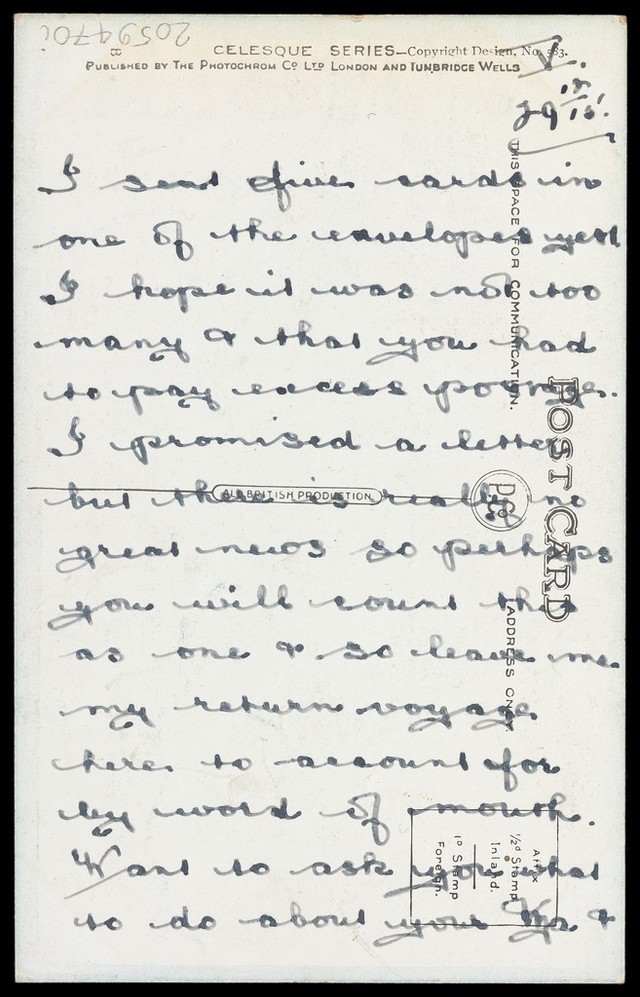 2059470i
CELESQUE SERIES—Copyright Design, No. 583.
PUBLISHED BY THE PHOTOCHROM CO LTD LONDON AND TUNBRIDGE WELLS
V.
29 15.
THIS SPACE FOR COMMUNICATION.
I sent five cards in
one of the envelopes yest
I hope it was not too
many & that you had
to pay excess postage.
I promised a letter
but there is really no
great news so perhaps
you will count this
as one & so leave me
my return voyage
here to account for
by word of mouth.
Want to ask you what
to do about your &
ALL BRITISH PRODUCTION
P Co
POST CARD
ADDRESS ONLY.
Affix
½d Stamp
Inland.
1d Stamp
Foreign.